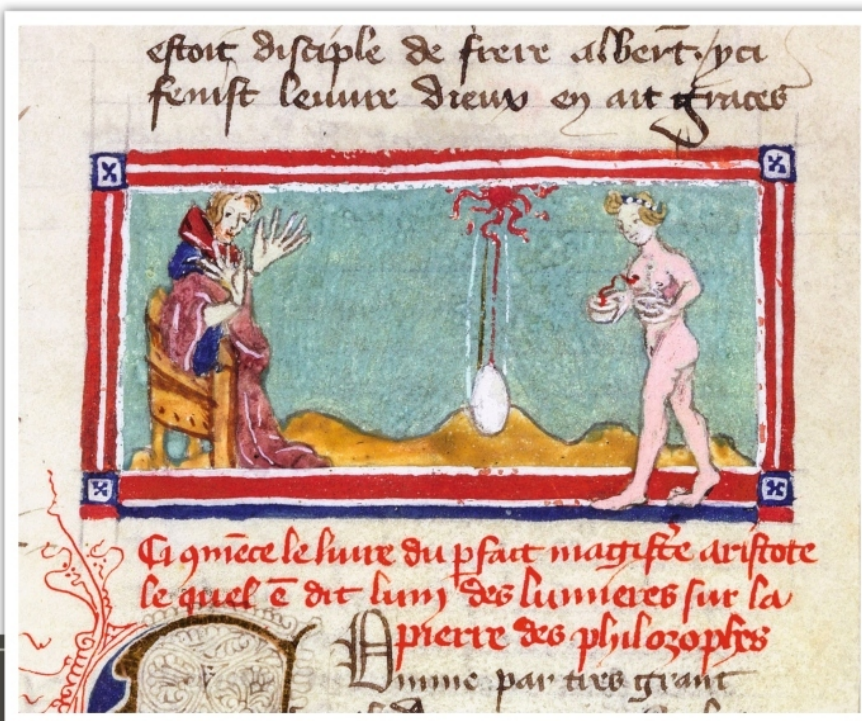 estoit disciple de freire albert. yci
fenist leuure dieux en ait graces
Ci 9mēce le liure du pfait magistre aristote
le quel ē dit lum des lumieres sur la
pierre des philozophes
par tres grant